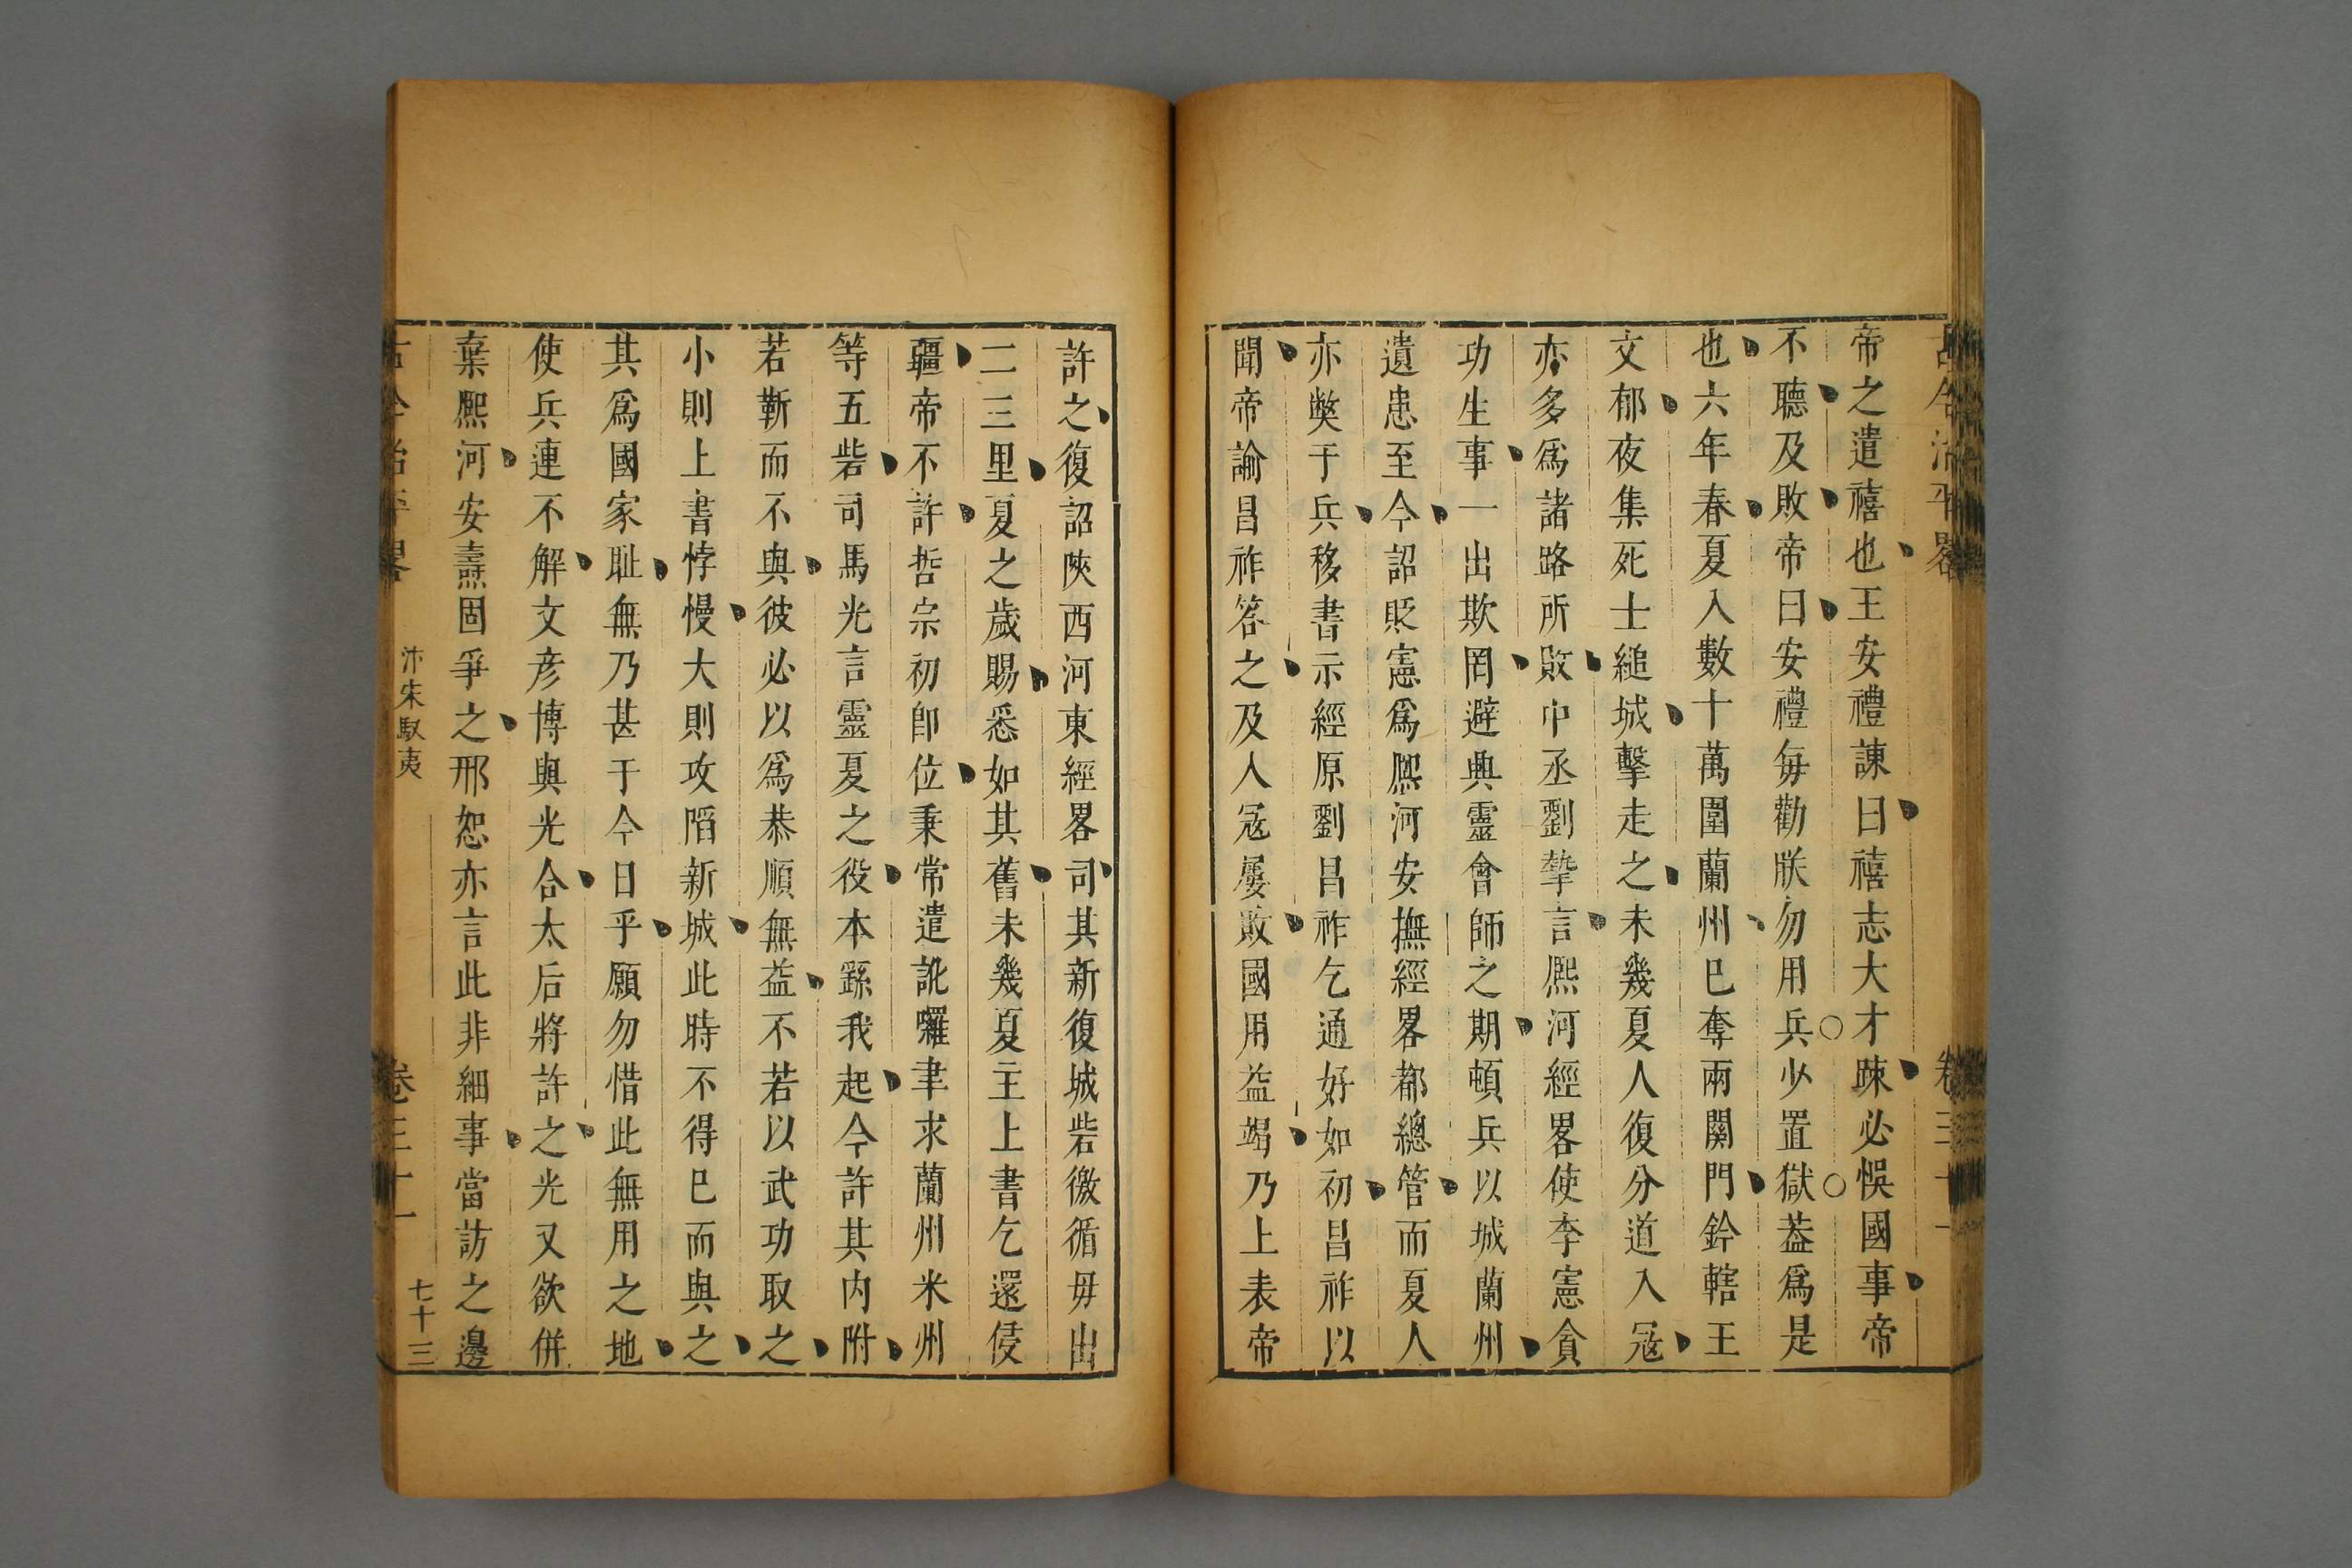 帝之遣禧也王安禮諫曰禧志大才疎必悞國事帝
不聽及敗帝曰安禮每勸朕勿用兵少置獄葢爲是
也六年春夏入數十萬圍蘭州已奪兩關門鈐轄王
文郁夜集死士縋城擊走之未幾夏人復分道入冦
亦多爲諸路所敗中丞劉摯言熈河經畧使李憲貪
功生事一出欺罔避興靈會師之期頓兵以城蘭州
遺患至今詔貶憲爲熈河安撫經畧都總管而夏人
亦獘于兵移書示經原劉昌祚乞通好如初昌祚以
聞帝諭昌祚答之及入冦屢敗國用益竭乃上表帝
許之復詔陝西河東經畧司其新復城砦徼循毋出
二三里夏之歲賜悉如其舊未幾夏主上書乞還侵
疆帝不許哲宗初卽位秉常遣訛囉聿求蘭州米州
等五砦司馬光言靈夏之役本繇我起今許其内附
若靳而不與彼必以爲恭順無益不若以武功取之
小則上書悖慢大則攻陷新城此時不得已而與之
其爲國家耻無乃甚于今日乎願勿惜此無用之地
使兵連不解文彦博與光合太后將許之光又欲併
棄熈河安燾固爭之邢恕亦言此非細事當訪之邊
古今治平畧
汴宋馭夷
卷三十一
七十三